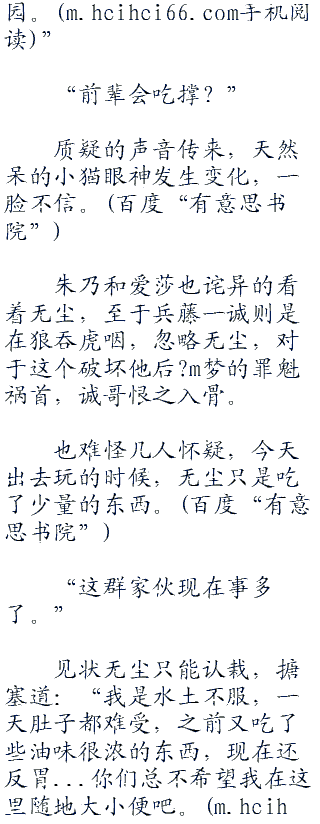 园。(m.hcihci66.com手机阅
读)”
“前辈会吃撑？”
质疑的声音传来，天然
呆的小猫眼神发生变化，一
脸不信。(百度“有意思书
院”)
朱乃和爱莎也诧异的看
着无尘，至于兵藤一诚则是
在狼吞虎咽，忽略无尘，对
于这个破坏他后?m梦的罪魁
祸首，诚哥恨之入骨。
也难怪几人怀疑，今天
出去玩的时候，无尘只是吃
了少量的东西。(百度“有意
思书院”)
“这群家伙现在事多
了。”
见状无尘只能认栽，搪
塞道：“我是水土不服，一
天肚子都难受，之前又吃了
些油味很浓的东西，现在还
反胃...你们总不希望我在这
里随地大小便吧。(m.hcih